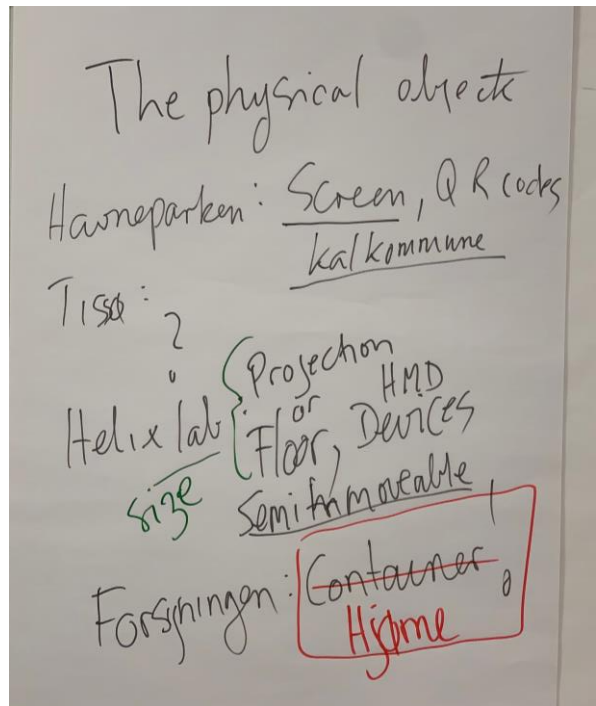 The physical objects
Havneparken: Screen, QR codes
kalkommune
Tissø:
?
Helix lab { Projection
or HMD
Floor, Devices
size
Semi immoveable
Forsyningen: Container !
Hjørne